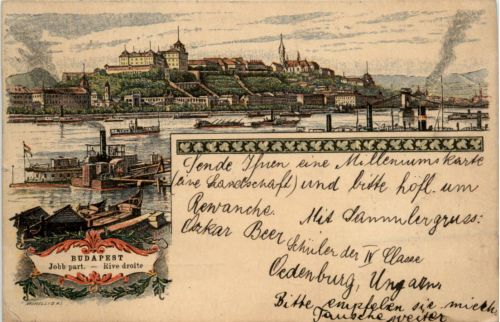 Sende Ihnen eine Milleniumskarte
(eine Landschaft) und bitte höfl. um
Revanche. Mit Sammlergruss:
Oskar Beer
Schüler der IV Classe
Oedenburg, Ungarn.
Bitte empfelen sie mich
Tausche weiter
BUDAPEST
Jobb part. — Rive droite
MORELLI G. R.